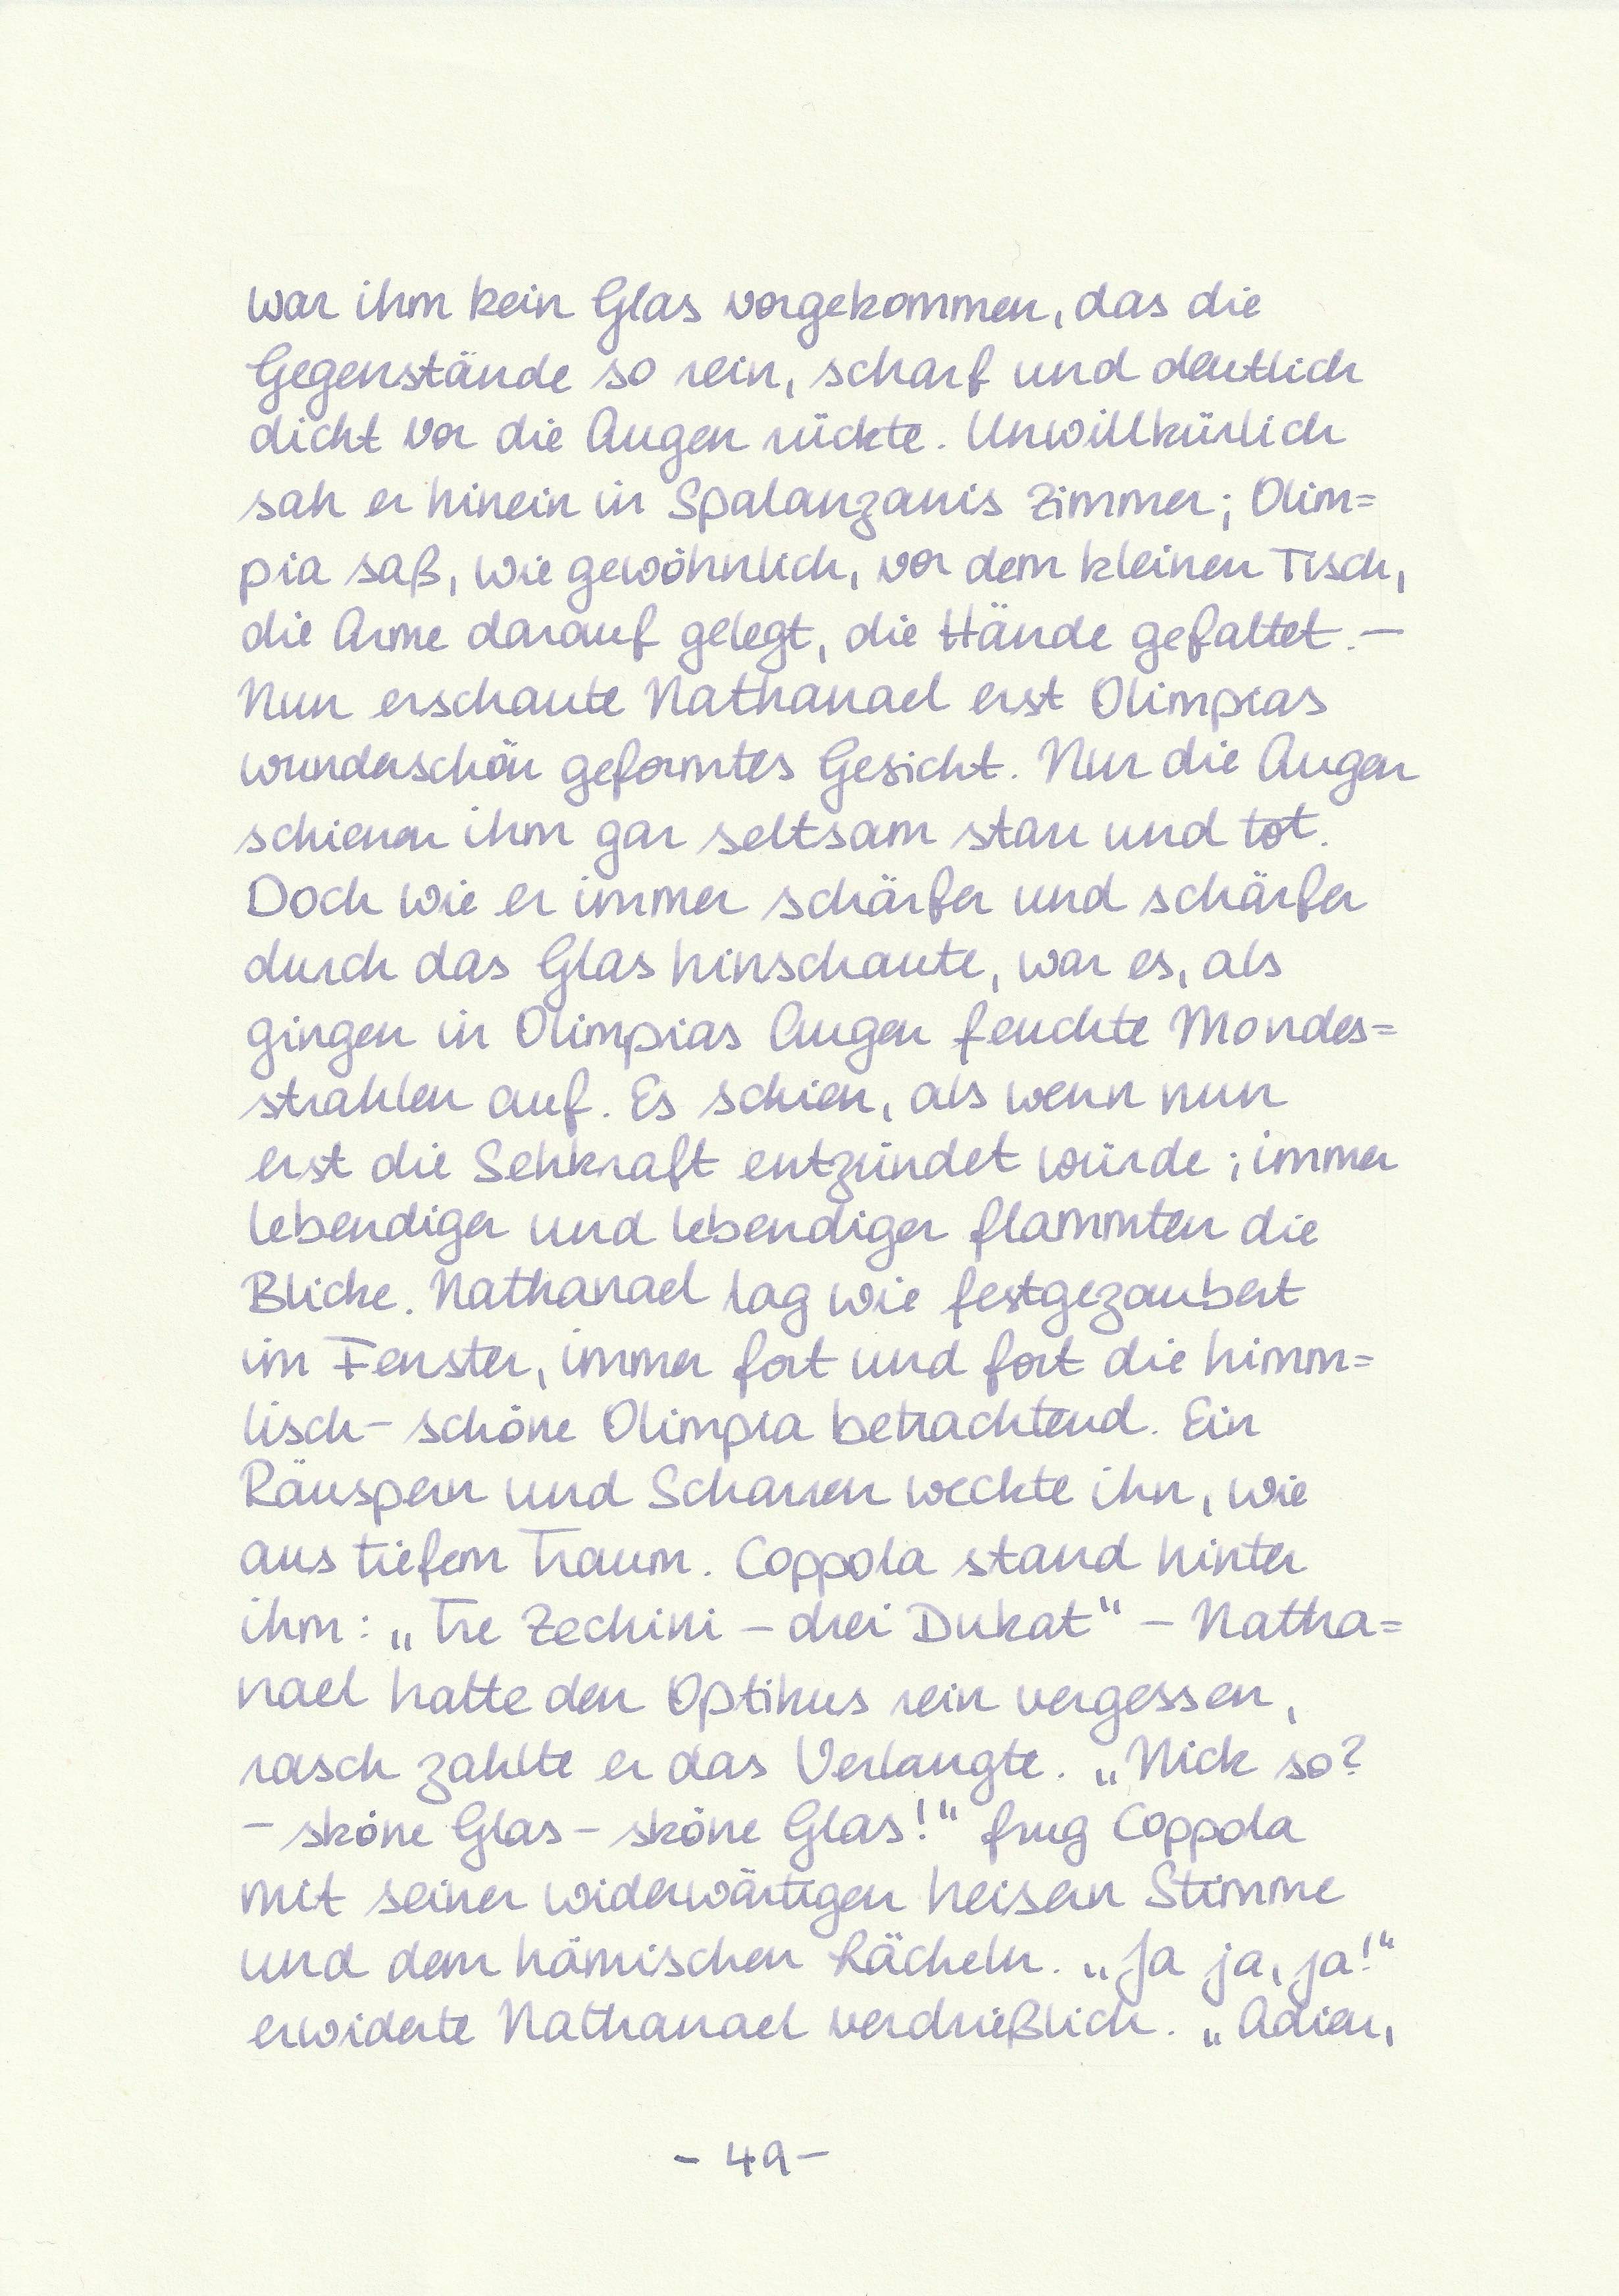 war ihm kein Glas vorgekommen, das die
Gegenstände so rein, scharf und deutlich
dicht vor die Augen rückte. Unwillkürlich
sah er hinein in Spalanzanis Zimmer; Olim=
pia saß, wie gewöhnlich, vor dem kleinen Tisch,
die Arme darauf gelegt, die Hände gefaltet. –
Nun erschaute Nathanael erst Olimpias
wunderschön geformtes Gesicht. Nur die Augen
schienen ihm gar seltsam starr und tot.
Doch wie er immer schärfer und schärfer
durch das Glas hinschaute, war es, als
gingen in Olimpias Augen feuchte Mondes=
strahlen auf. Es schien, als wenn nun
erst die Sehkraft entzündet würde; immer
lebendiger und lebendiger flammten die
Blicke. Nathanael lag wie festgezaubert
im Fenster, immer fort und fort die himm=
lisch-schöne Olimpia betrachtend. Ein
Räuspern und Scharren weckte ihn, wie
aus tiefem Traum. Coppola stand hinter
ihm: „Tre Zechini – drei Dukat“ – Natha=
nael hatte den Optikus rein vergessen,
rasch zahlte er das Verlangte. „Nick so?
– sköne Glas – sköne Glas!“ frug Coppola
mit seiner widerwärtigen heisern Stimme
und dem hämischen Lächeln. „Ja ja, ja!“
erwiderte Nathanael verdrießlich. „Adieu,
- 49 -